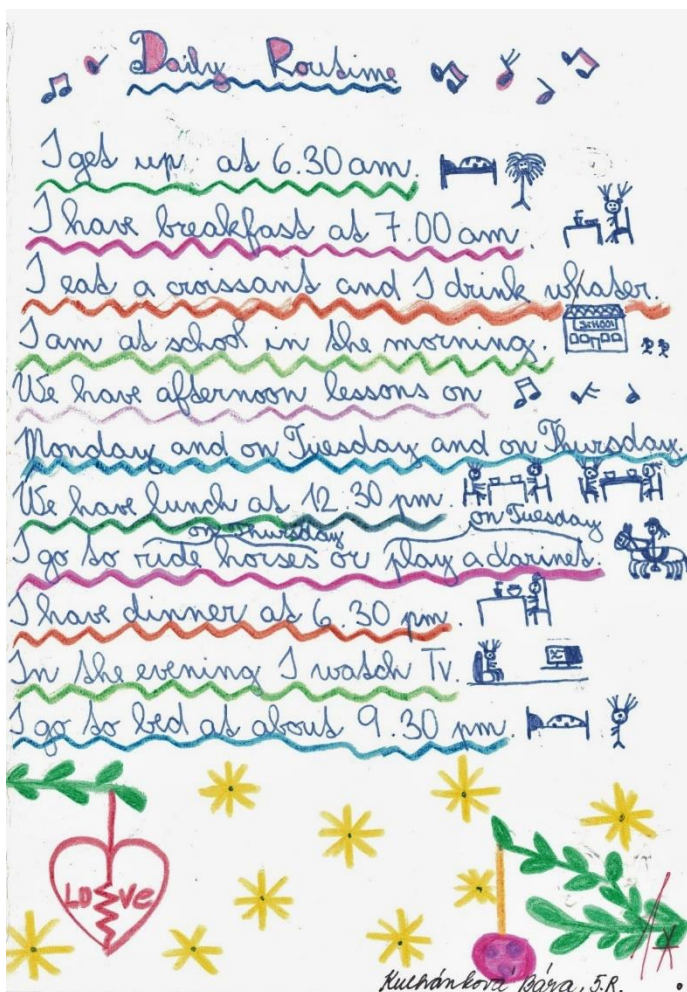 Daily Routine
I get up at 6.30 am.
I have breakfast at 7.00 am.
I eat a croissant and I drink whater.
SCHOOL
I am at school in the morning.
We have afternoon lessons on
Monday and on Tuesday and on Thursday.
We have lunch at 12.30 pm.
on Thursday on Tuesday
I go to ride horses or play a clarinet.
I have dinner at 6.30 pm.
In the evening I watch Tv.
I go to bed at about 9.30 pm.
LOVE
Kuchánková Bára, 5.R.